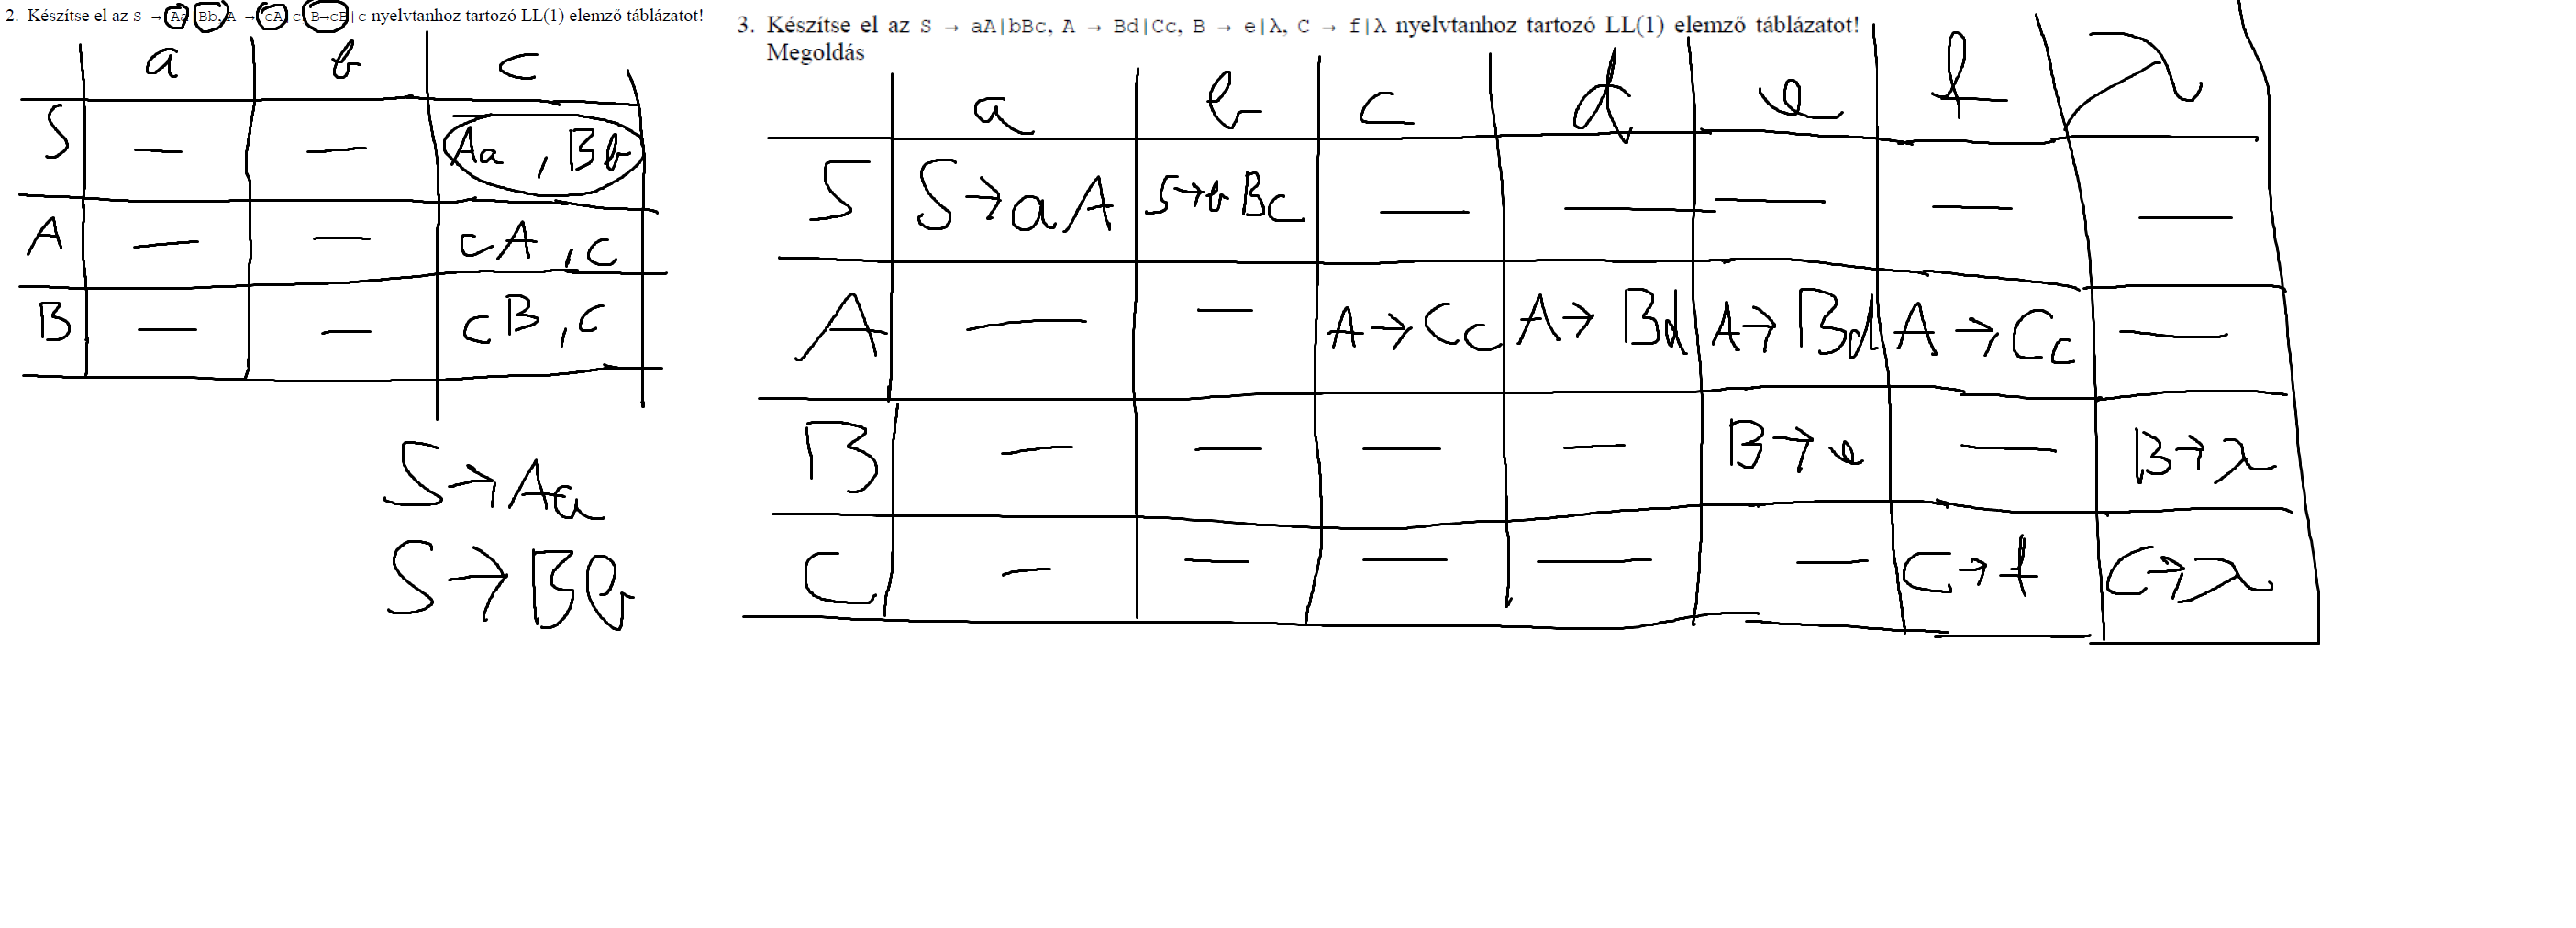 2. Készítse el az S → Aa Bb, A → cA c B→cB | c nyelvtanhoz tartozó LL(1) elemző táblázatot!
a b c
S — — Aa , Bb
A — — cA , c
B — — cB , c
S → Aa
S → Bb
3. Készítse el az S → aA|bBc, A → Bd|Cc, B → e|λ, C → f|λ nyelvtanhoz tartozó LL(1) elemző táblázatot!
Megoldás
a b c d e f λ
S S→aA S→bBc — — — — —
A — — A→Cc A→Bd A→Bd A→Cc —
B — — — — B→e — B→λ
C — — — — — C→f C→λ